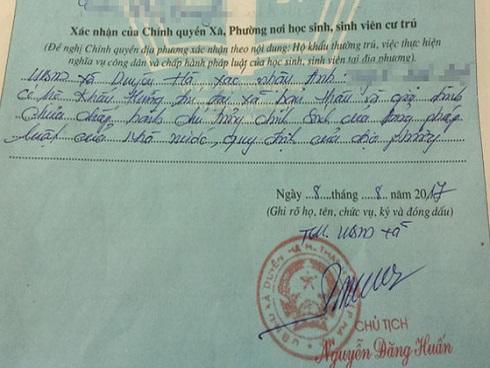 Xác nhận của Chính quyền Xã, Phường nơi học sinh, sinh viên cư trú
(Đề nghị Chính quyền địa phương xác nhận theo nội dung: Hộ khẩu thường trú, việc thực hiện
nghĩa vụ công dân và chấp hành pháp luật của học sinh, sinh viên tại địa phương).
UBND xã Duyên Hà xác nhận
có hộ khẩu thường trú tại xã bản thân và gia đình
chưa chấp hành chủ trương chính sách của Đảng pháp
luật của nhà nước, quy định của địa phương
Ngày 8 tháng 8 năm 2017
(Ghi rõ họ, tên, chức vụ, ký và đóng dấu)
TM. UBND xã
CHỦ TỊCH
Nguyễn Đăng Huấn